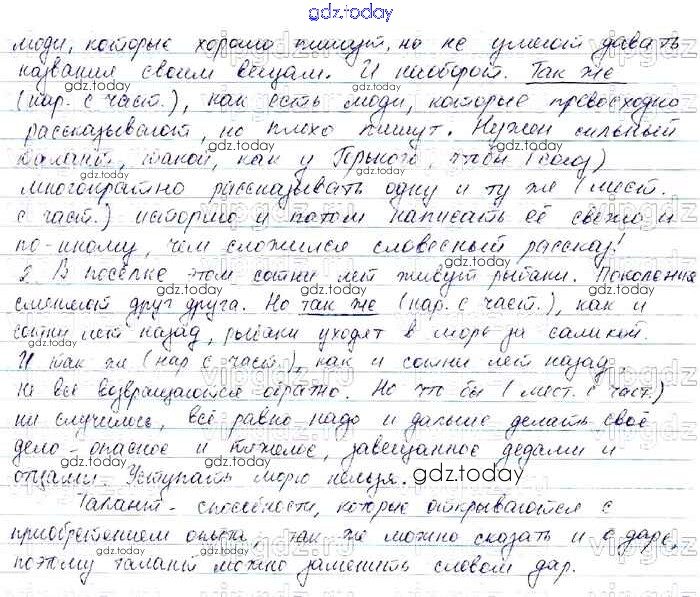 gdz.today
люди, которые хорошо пишут, но не умеют давать
названия своим вещам. И наоборот. Так же
(нар. с част.), как есть люди, которые превосходно
рассказывают, но плохо пишут. Нужен сильный
талант, такой, как у Горького, чтобы (союз)
многократно рассказывать одну и ту же (мест.
с част.) историю и потом написать её свежо и
по-иному, чем сложился словесный рассказ!
2. В поселке этом сотни лет живут рыбаки. Поколения
сменяют друг друга. Но так же (нар. с част.), как и
сотни лет назад, рыбаки уходят в море за салакой.
И так же (нар с част.), как и сотни лет назад
не все возвращаются обратно. Но что бы (мест. с част.)
ни случилось, всё равно надо и дальше делать своё
дело - опасное и тяжелое, завещанное дедами и
отцами. Уступать морю нельзя.
Талант - способности, которые открываются с
приобретением опыта, так же можно сказать и о даре,
поэтому талант можно заменить словом дар.